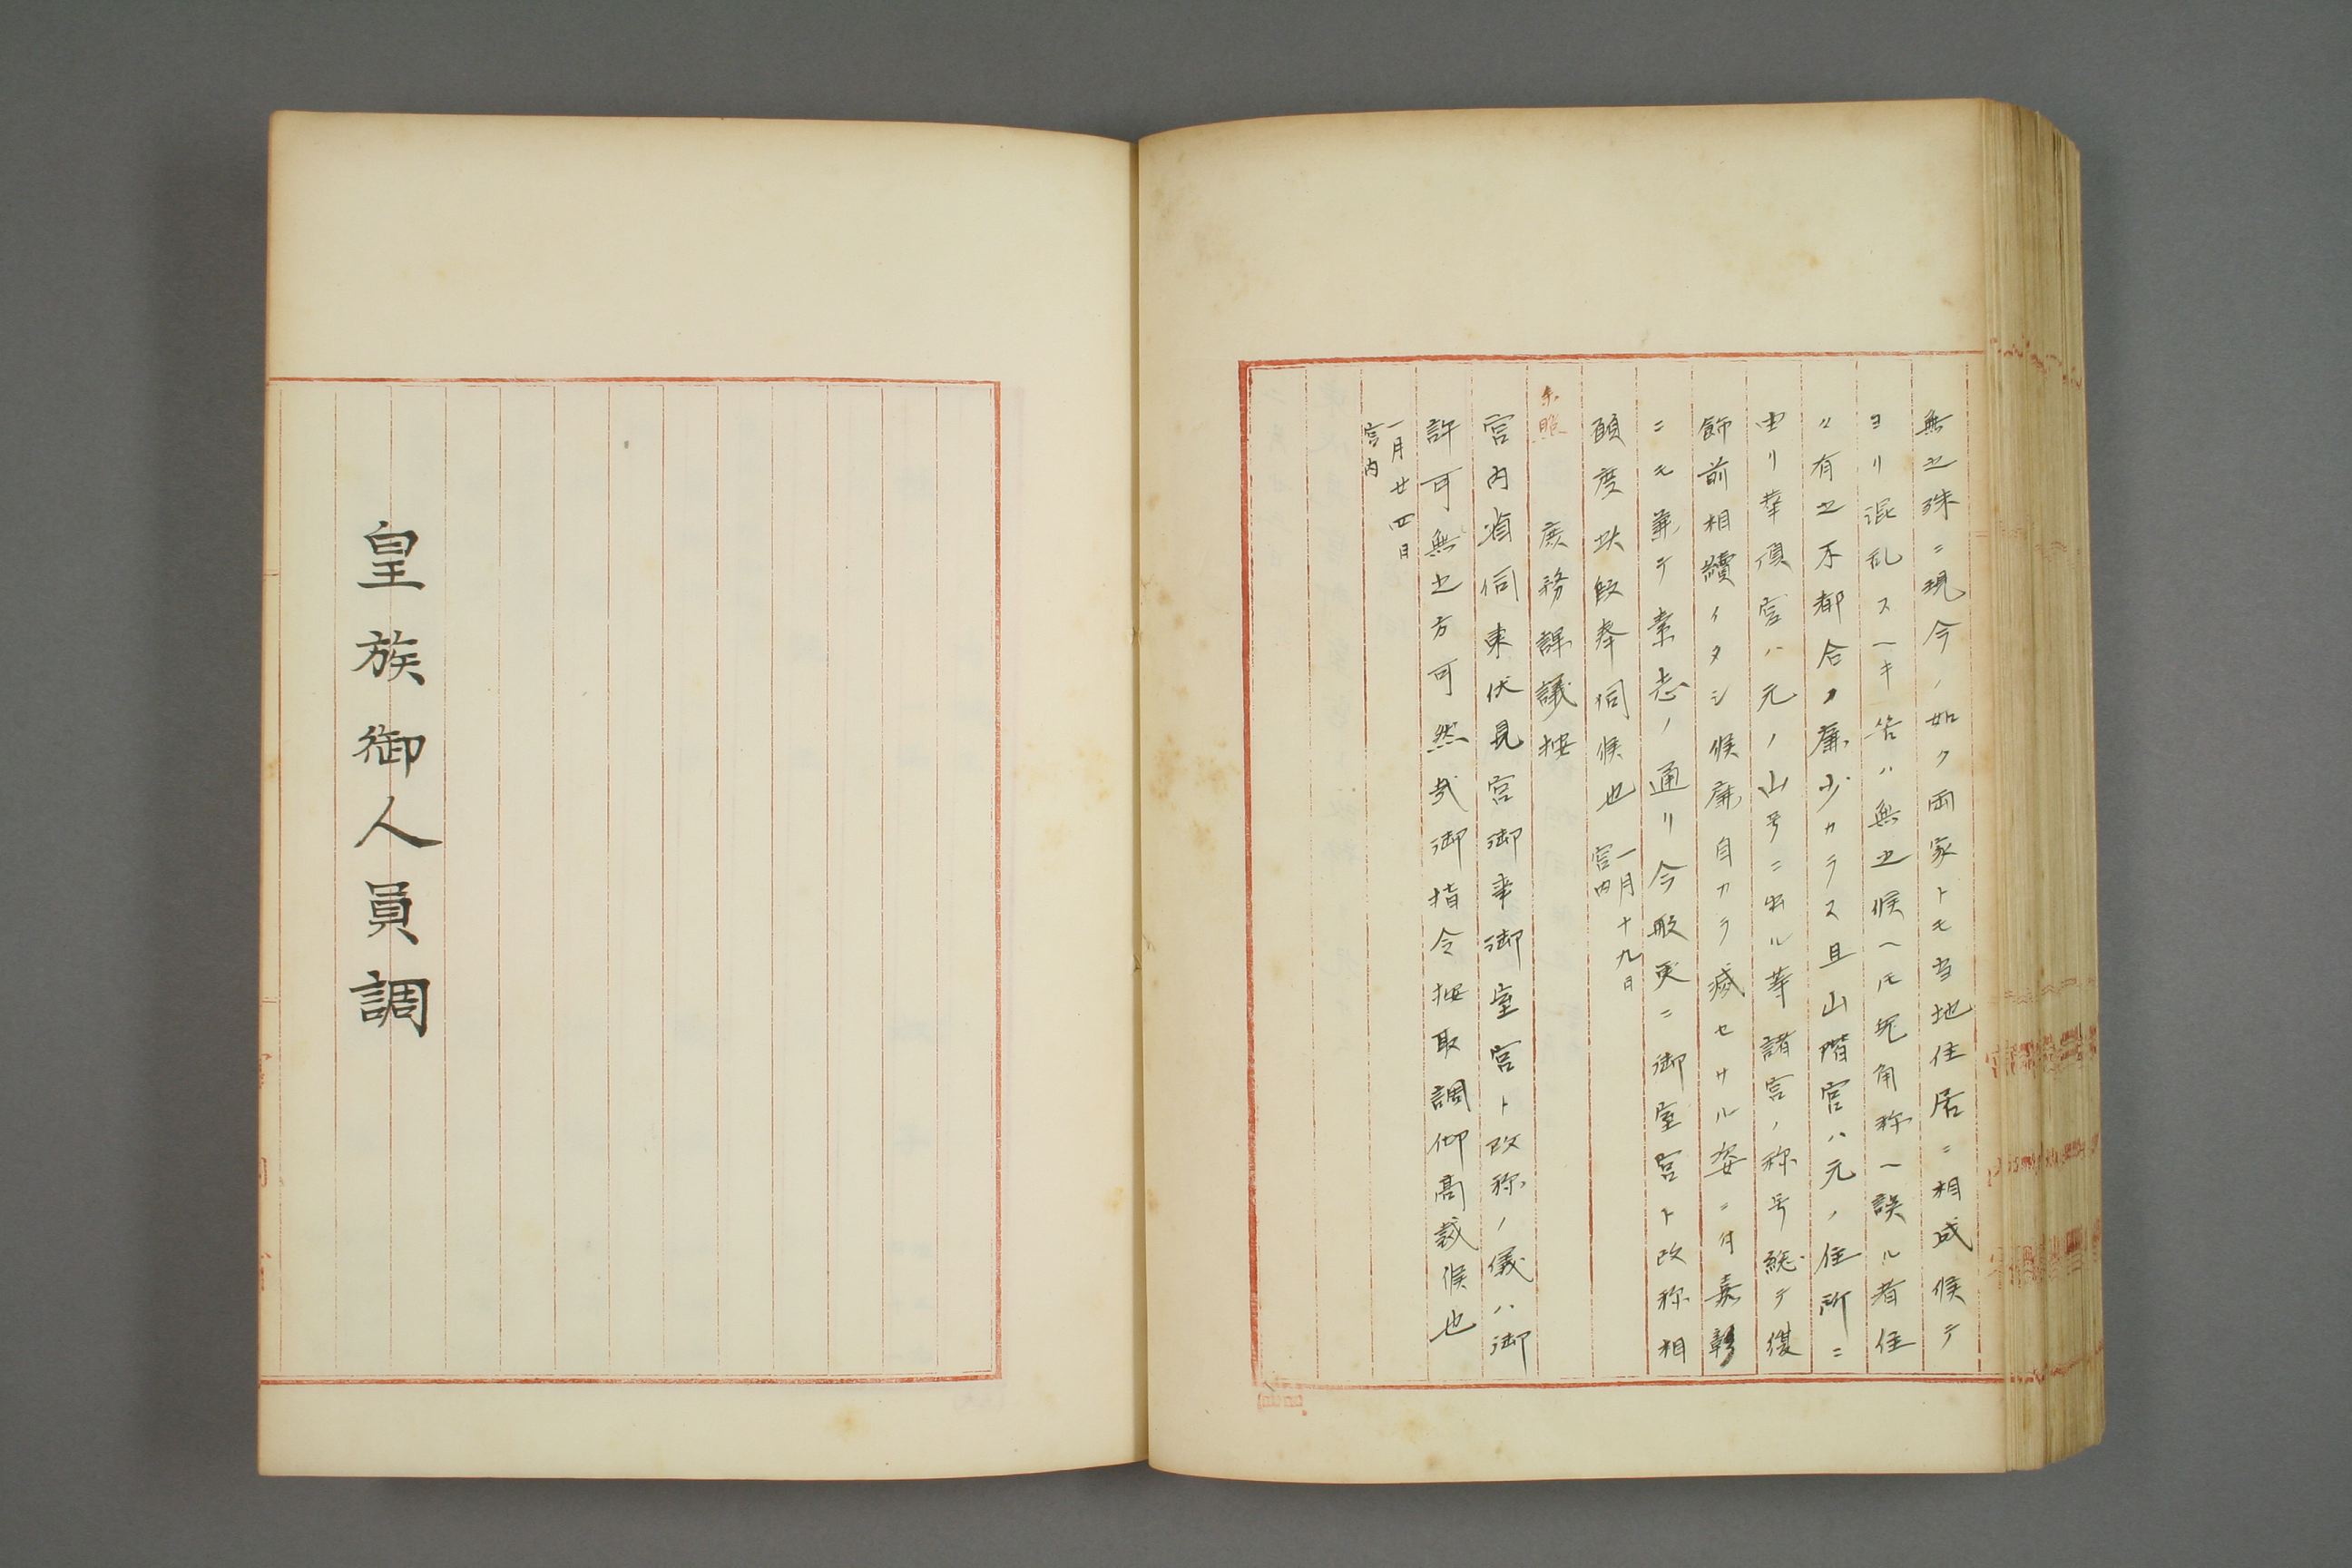 無之殊ニ現今ノ如ク両家トモ当地住居ニ相成候テ
ヨリ混乱スヘキ筈ハ無之候ヘ圧兎角称ヘ誤ル者住
々有之不都合ノ廉少カラス且山階宮ハ元ノ住所ニ
由リ華頂宮ハ元ノ山号ニ出ル等諸宮ノ称号総テ復
飾前相續イタシ候廉自カラ滅セサル姿ニ付嘉彰
ニモ兼テ素志ノ通リ今般更ニ御室宮ト改称相
願度此段奉伺候也 一月十九日
宮内
朱
庶務課議按
宮内省伺東伏見宮御事御室宮ト改称ノ儀ハ御
許可無之方可然哉御指令按取調仰高裁候也
一月廿四日
宮内
皇族御人員調